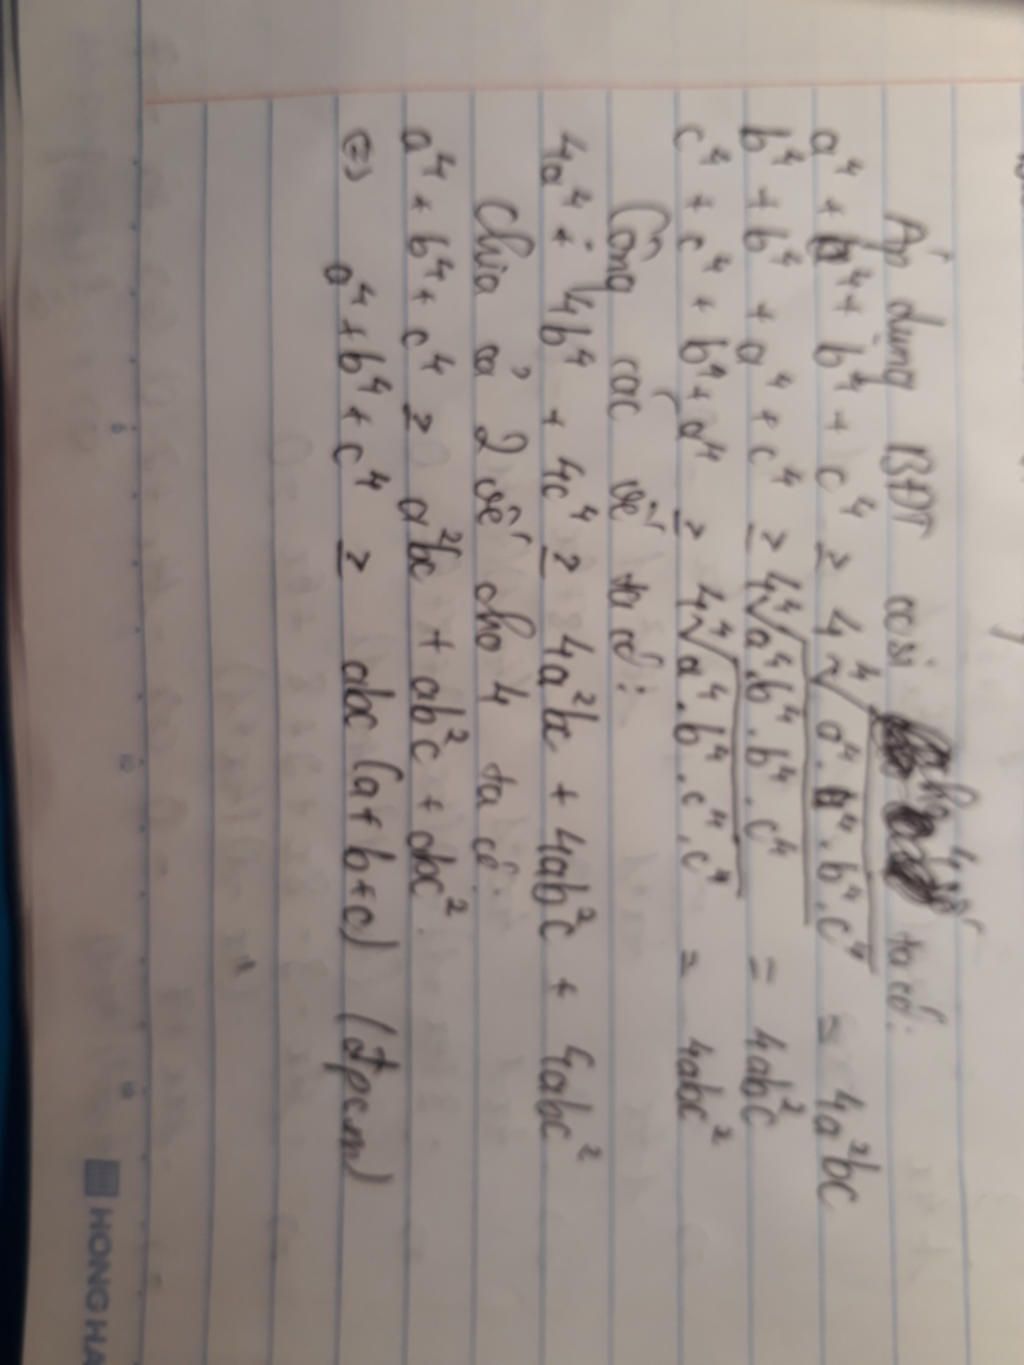 Áp dụng BĐT cosi cho 4 số ta có:
a⁴ + b⁴ + b⁴ + c⁴ ≥ 4 ⁴√a⁴.a⁴.b⁴.c⁴ = 4a²bc
b⁴ + b⁴ + a⁴ + c⁴ ≥ 4 ⁴√a⁴.b⁴.b⁴.c⁴ = 4ab²c
c⁴ + c⁴ + b⁴ + a⁴ ≥ 4 ⁴√a⁴.b⁴.c⁴.c⁴ = 4abc²
Cộng các vế ta có:
4a⁴ + 4b⁴ + 4c⁴ ≥ 4a²bc + 4ab²c + 4abc²
Chia cả 2 vế cho 4 ta có:
a⁴ + b⁴ + c⁴ ≥ a²bc + ab²c + abc².
⇔ a⁴ + b⁴ + c⁴ ≥ abc (a + b + c) (đpcm)
HONG HA